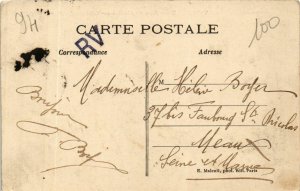 9H
100
CARTE POSTALE
RV
Correspondance
Adresse
Mademoiselle Hélène
37bis Faubourg St Nicolas
Meaux
Seine et Marne
Bonjour
E. Malcuit, phot. édit. Paris